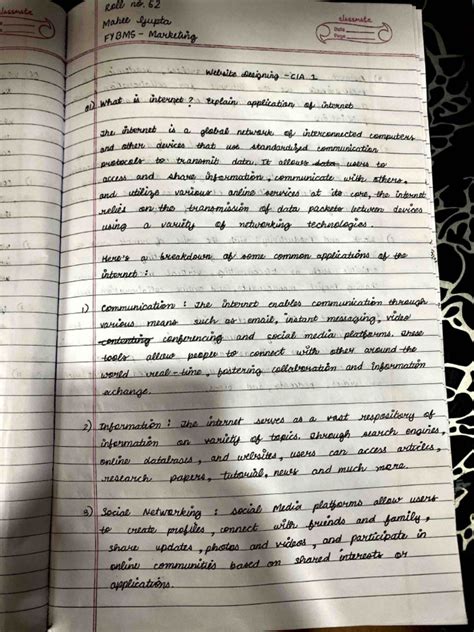 Roll no. 62
Mahee Gupta
FYBMS - Marketing
classmate
Date
Page
Website designing - CIA 1
Q1) What is internet? Explain application of internet
The internet is a global network of interconnected computers
and other devices that use standardized communication
protocols to transmit data. It allows users to
access and share information, communicate with others,
and utilize various online services at its core, the internet
relies on the transmission of data packets between devices
using a variety of networking technologies.
Here's a breakdown of some common applications of the
internet :
1) Communication : The internet enables communication through
various means such as email, instant messaging, video
conferencing and social media platforms. These
tools allow people to connect with other around the
world real-time, fostering collaboration and information
exchange.
2) Information : The internet serves as a vast respository of
information on variety of topics. Through search engines,
online databases, and websites, users can access articles,
research papers, tutorial, news and much more.
3) Social Networking : Social Media platforms allow users
to create profiles, connect with friends and family,
share updates, photos and videos, and participate in
online communities based on shared interests or
applications.